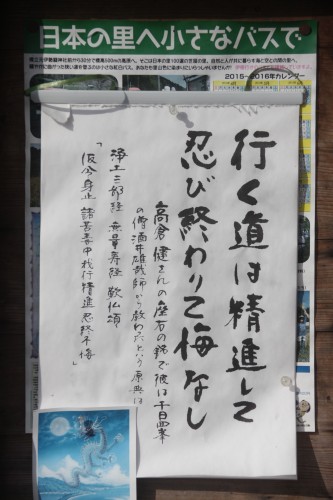 日本の里へ小さなバスで
2015~2016年カレンダー
行く道は精進して
忍び終わりて悔なし
高倉健さんの座右の銘で彼は千日回峯
の僧酒井雄哉師から教わったという原典は
浄土三部経 無量寿経 歎仏頌
「仮令身止 諸苦毒中 我行精進 忍終不悔」